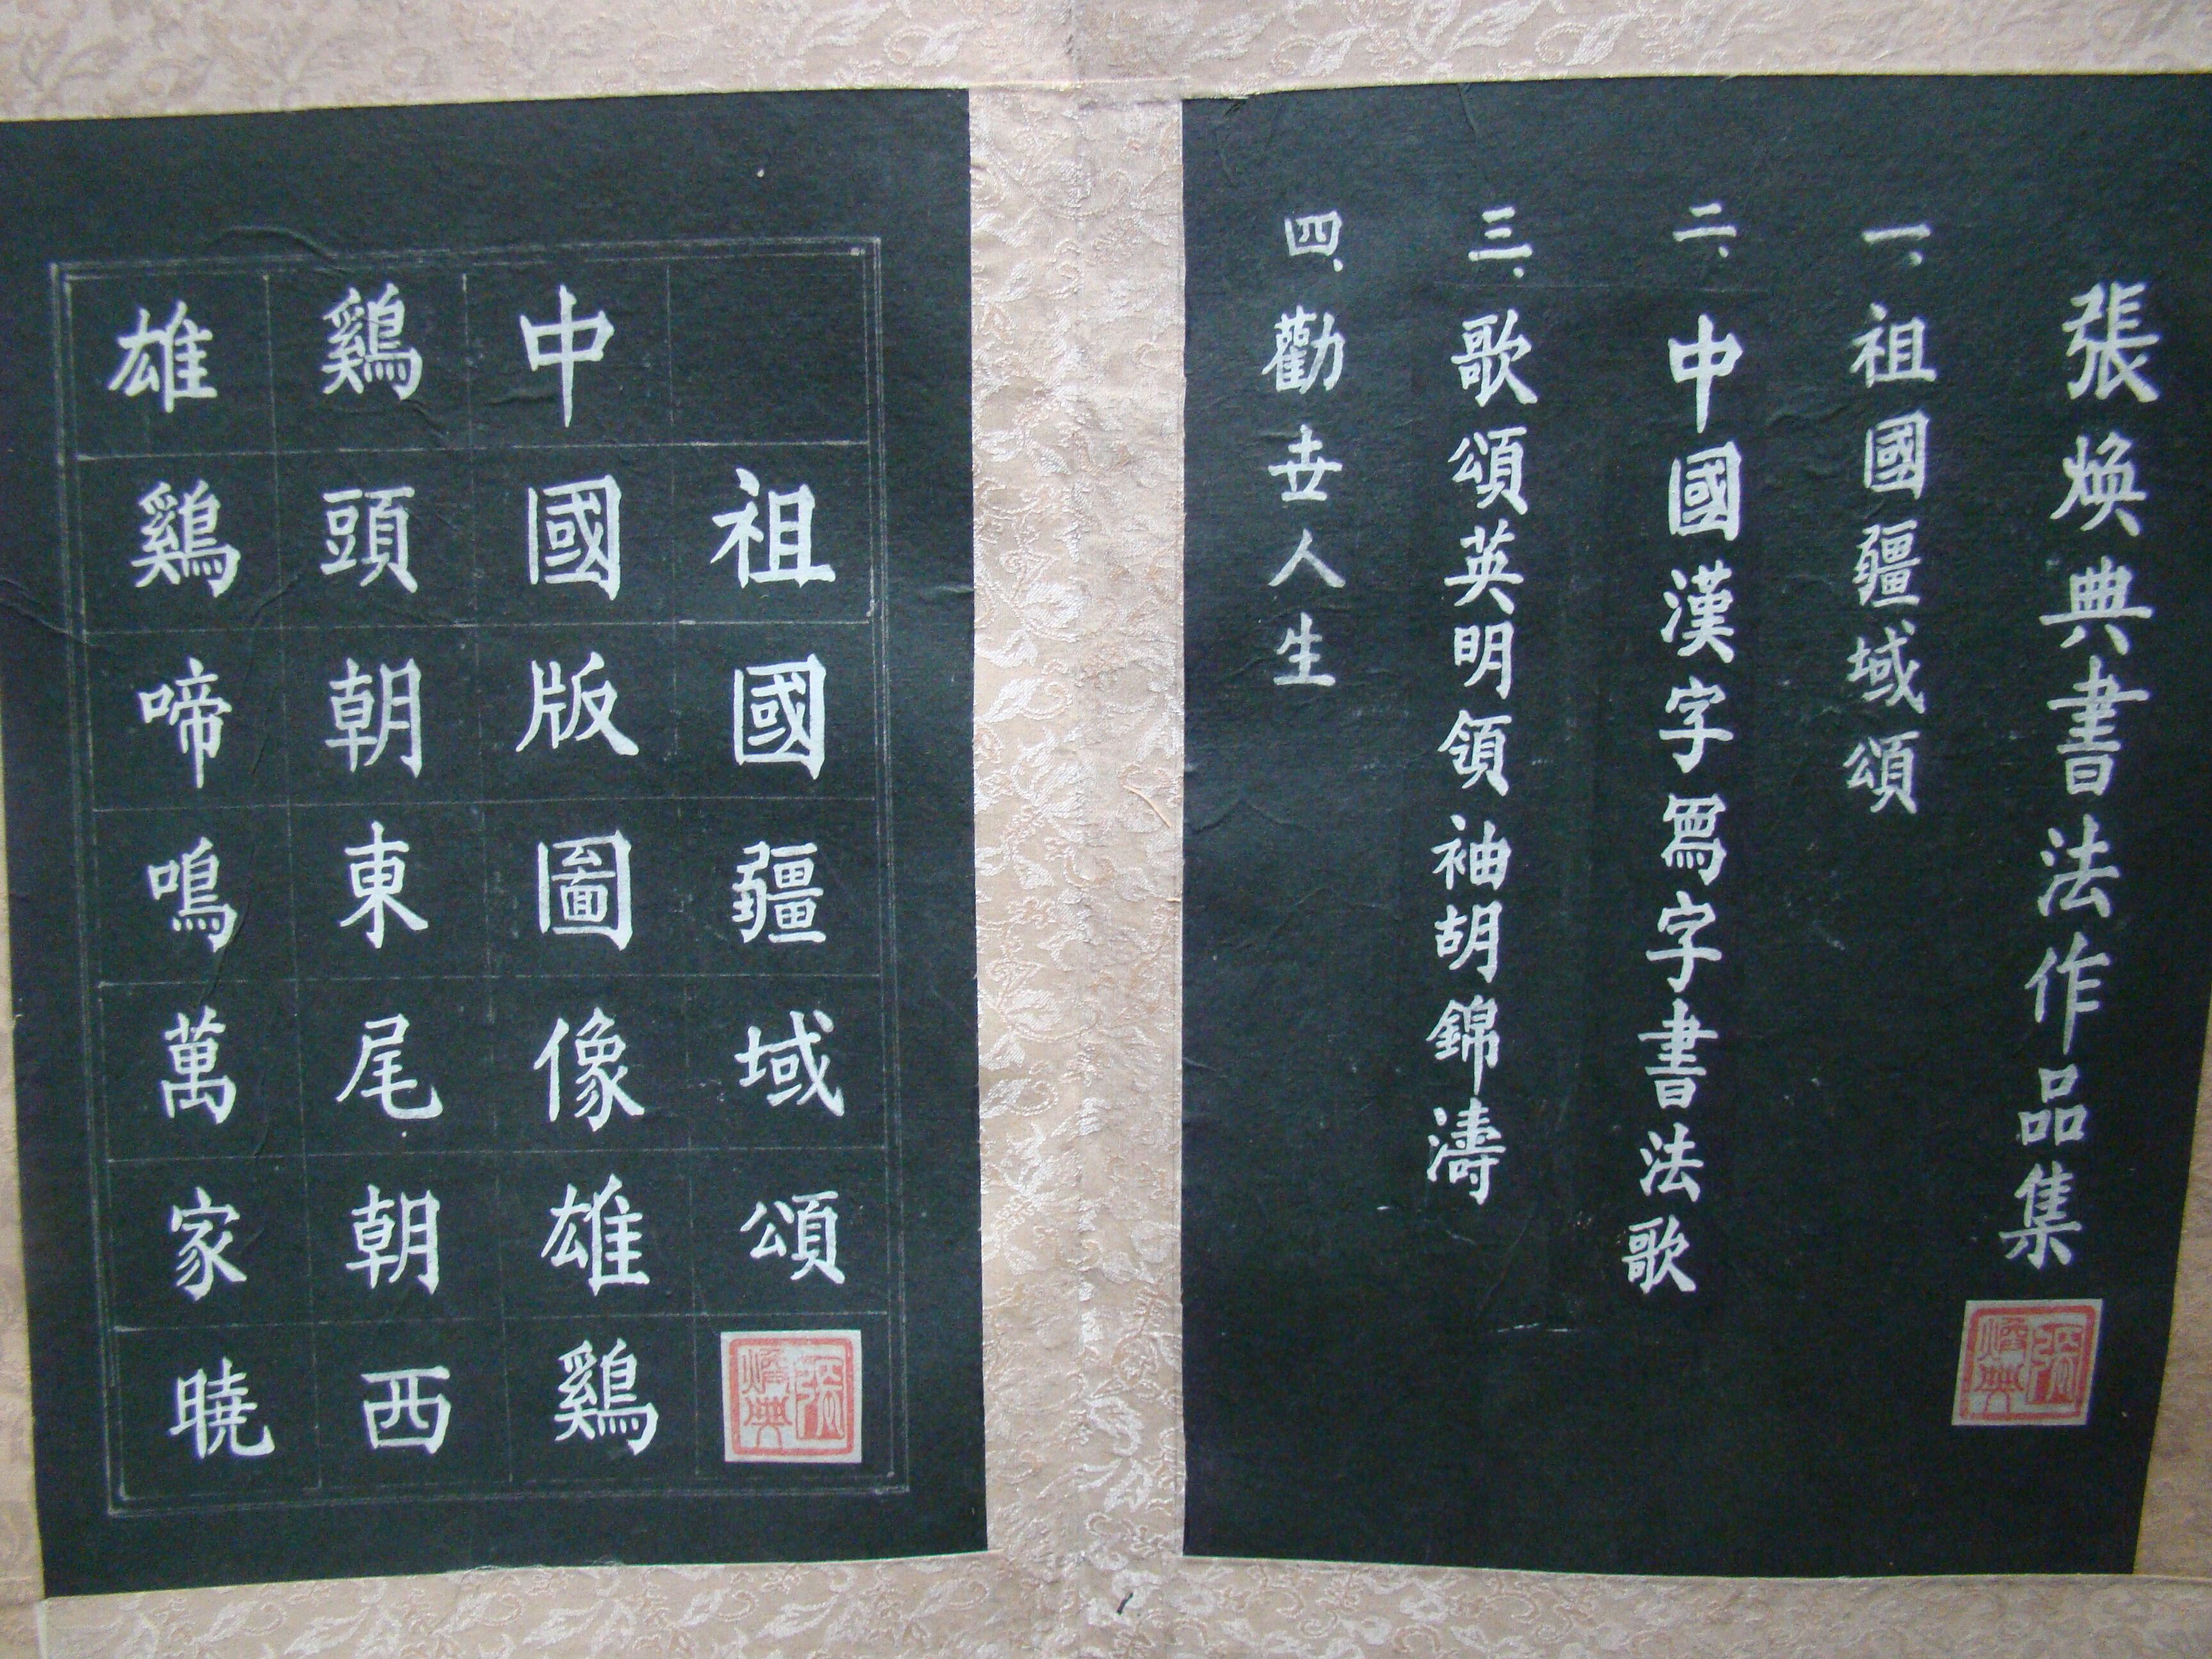 張焕典書法作品集
張焕典
一、祖國疆域頌
二、中國漢字寫字書法歌
三、歌頌英明領袖胡錦濤
四、勸世人生
祖國疆域頌
張焕典
中國版圖像雄鷄
鷄頭朝東尾朝西
雄鷄啼鳴萬家曉